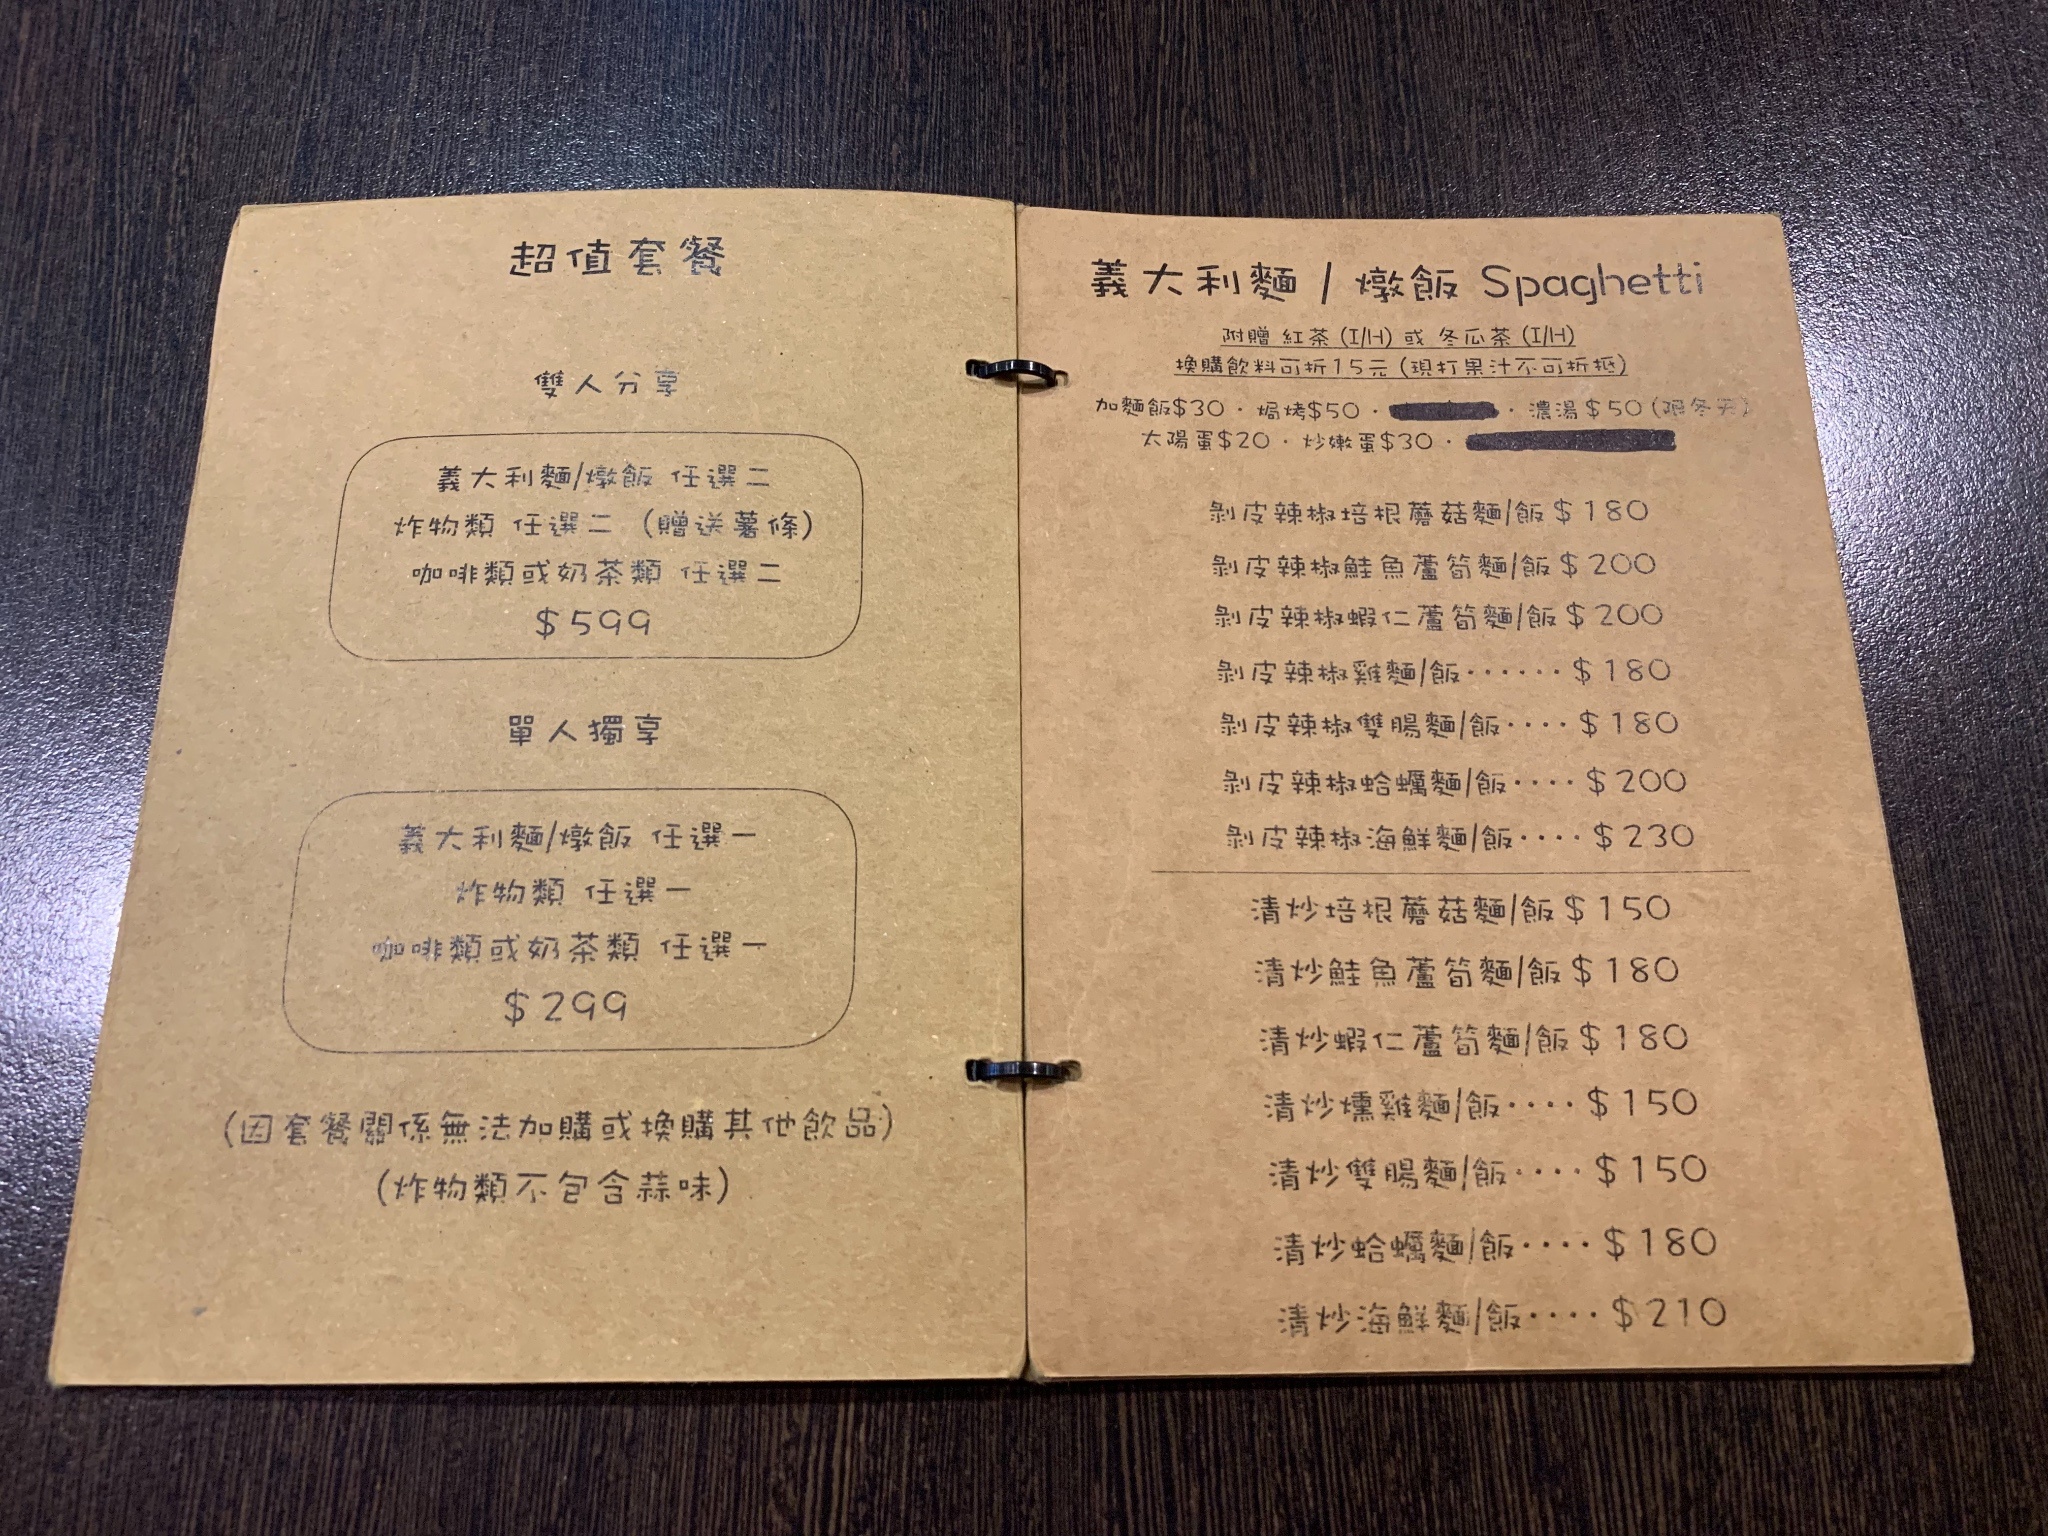 超值套餐
雙人分享
義大利麵/燉飯 任選二
炸物類 任選二 (贈送薯條)
咖啡類或奶茶類 任選二
$599
單人獨享
義大利麵/燉飯 任選一
炸物類 任選一
咖啡類或奶茶類 任選一
$299
(因套餐關係無法加購或換購其他飲品)
(炸物類不包含蒜味)
義大利麵 / 燉飯 Spaghetti
附贈 紅茶 (I/H) 或 冬瓜茶 (I/H)
換購飲料可折15元 (現打果汁不可折抵)
加麵飯$30 · 焗烤$50 · · 濃湯$50 (限冬天)
太陽蛋$20 · 炒嫩蛋$30 ·
剝皮辣椒培根蘑菇麵/飯 $180
剝皮辣椒鮭魚蘆筍麵/飯 $200
剝皮辣椒蝦仁蘆筍麵/飯 $200
剝皮辣椒雞麵/飯······$180
剝皮辣椒雙腸麵/飯····$180
剝皮辣椒蛤蠣麵/飯····$200
剝皮辣椒海鮮麵/飯····$230
清炒培根蘑菇麵/飯 $150
清炒鮭魚蘆筍麵/飯 $180
清炒蝦仁蘆筍麵/飯 $180
清炒燻雞麵/飯····$150
清炒雙腸麵/飯····$150
清炒蛤蠣麵/飯····$180
清炒海鮮麵/飯····$210